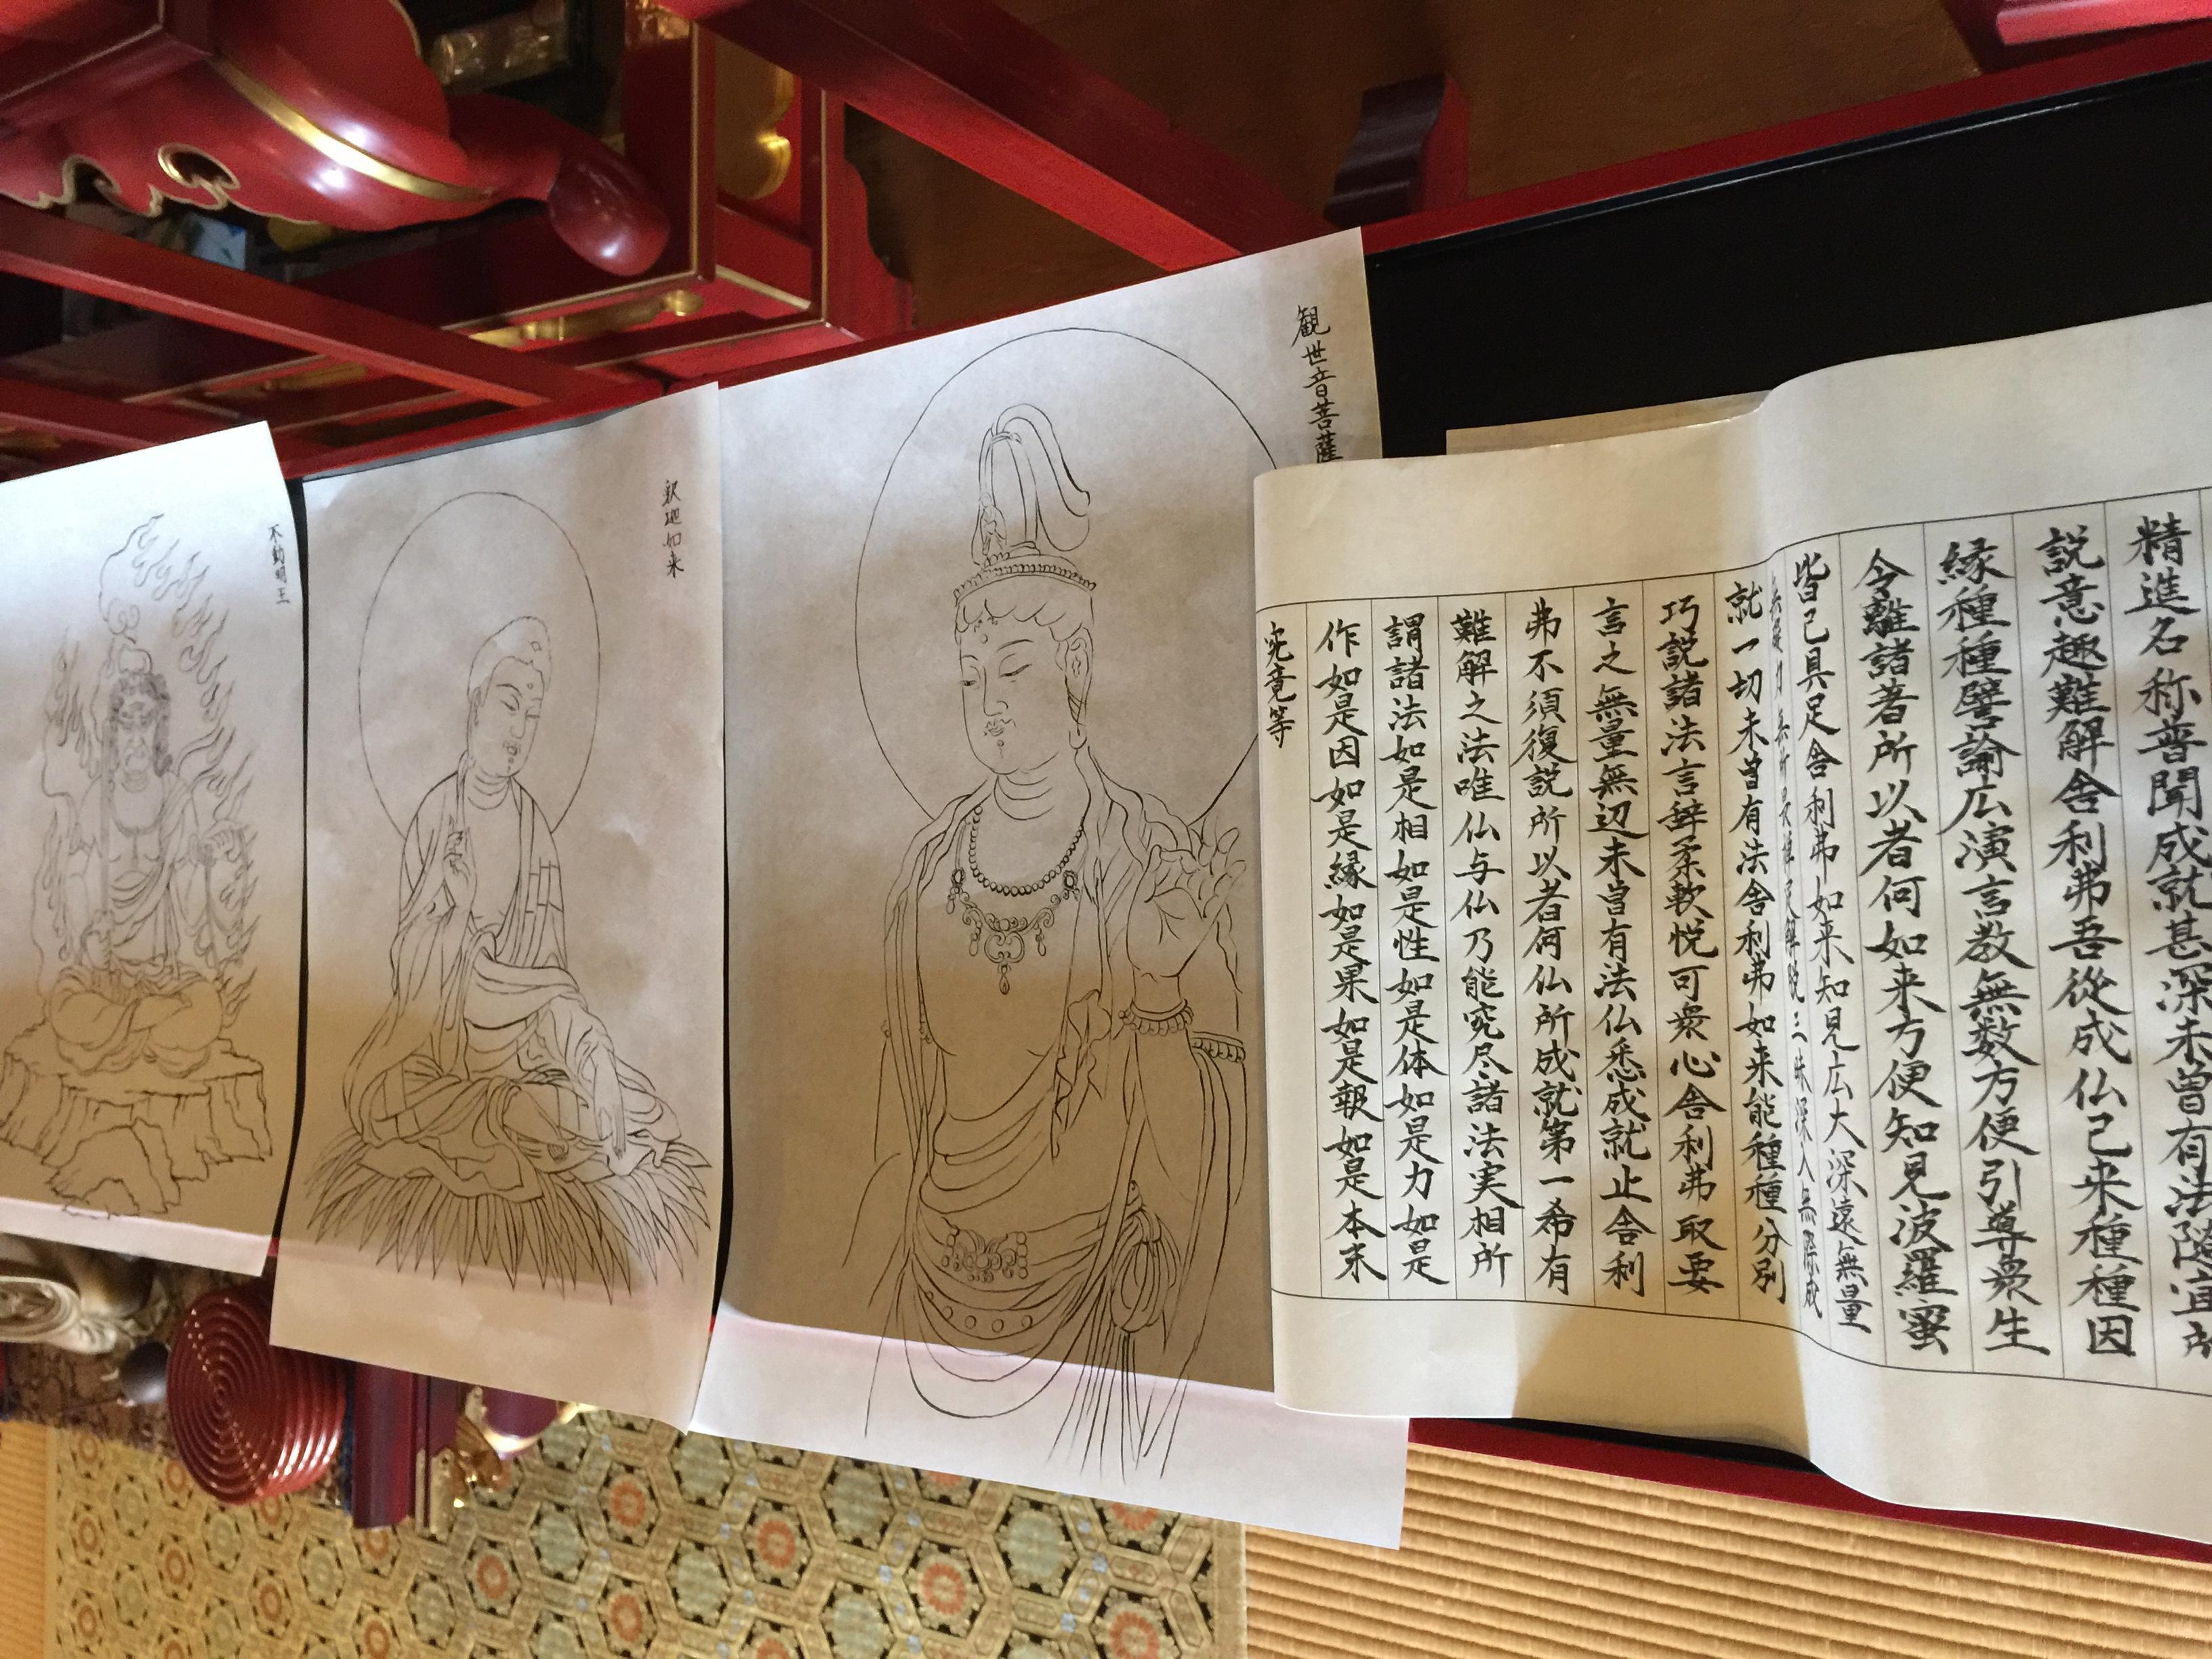 精進名称普聞成就甚深未曾有法随宜所
説意趣難解舎利弗吾從成仏已来種種因
縁種種譬諭広演言教無数方便引導衆生
令離諸著所以者何如来方便知見波羅蜜
皆已具足舎利弗如来知見広大深遠無量
無礙力無所畏禅定解脱三昧深入無際成
就一切未曾有法舎利弗如来能種種分別
巧説諸法言辞柔軟悦可衆心舎利弗取要
言之無量無辺未曾有法仏悉成就止舎利
弗不須復説所以者何仏所成就第一希有
難解之法唯仏与仏乃能究尽諸法実相所
謂諸法如是相如是性如是体如是力如是
作如是因如是縁如是果如是報如是本末
究竟等
観世音菩薩
釈迦如来
不動明王